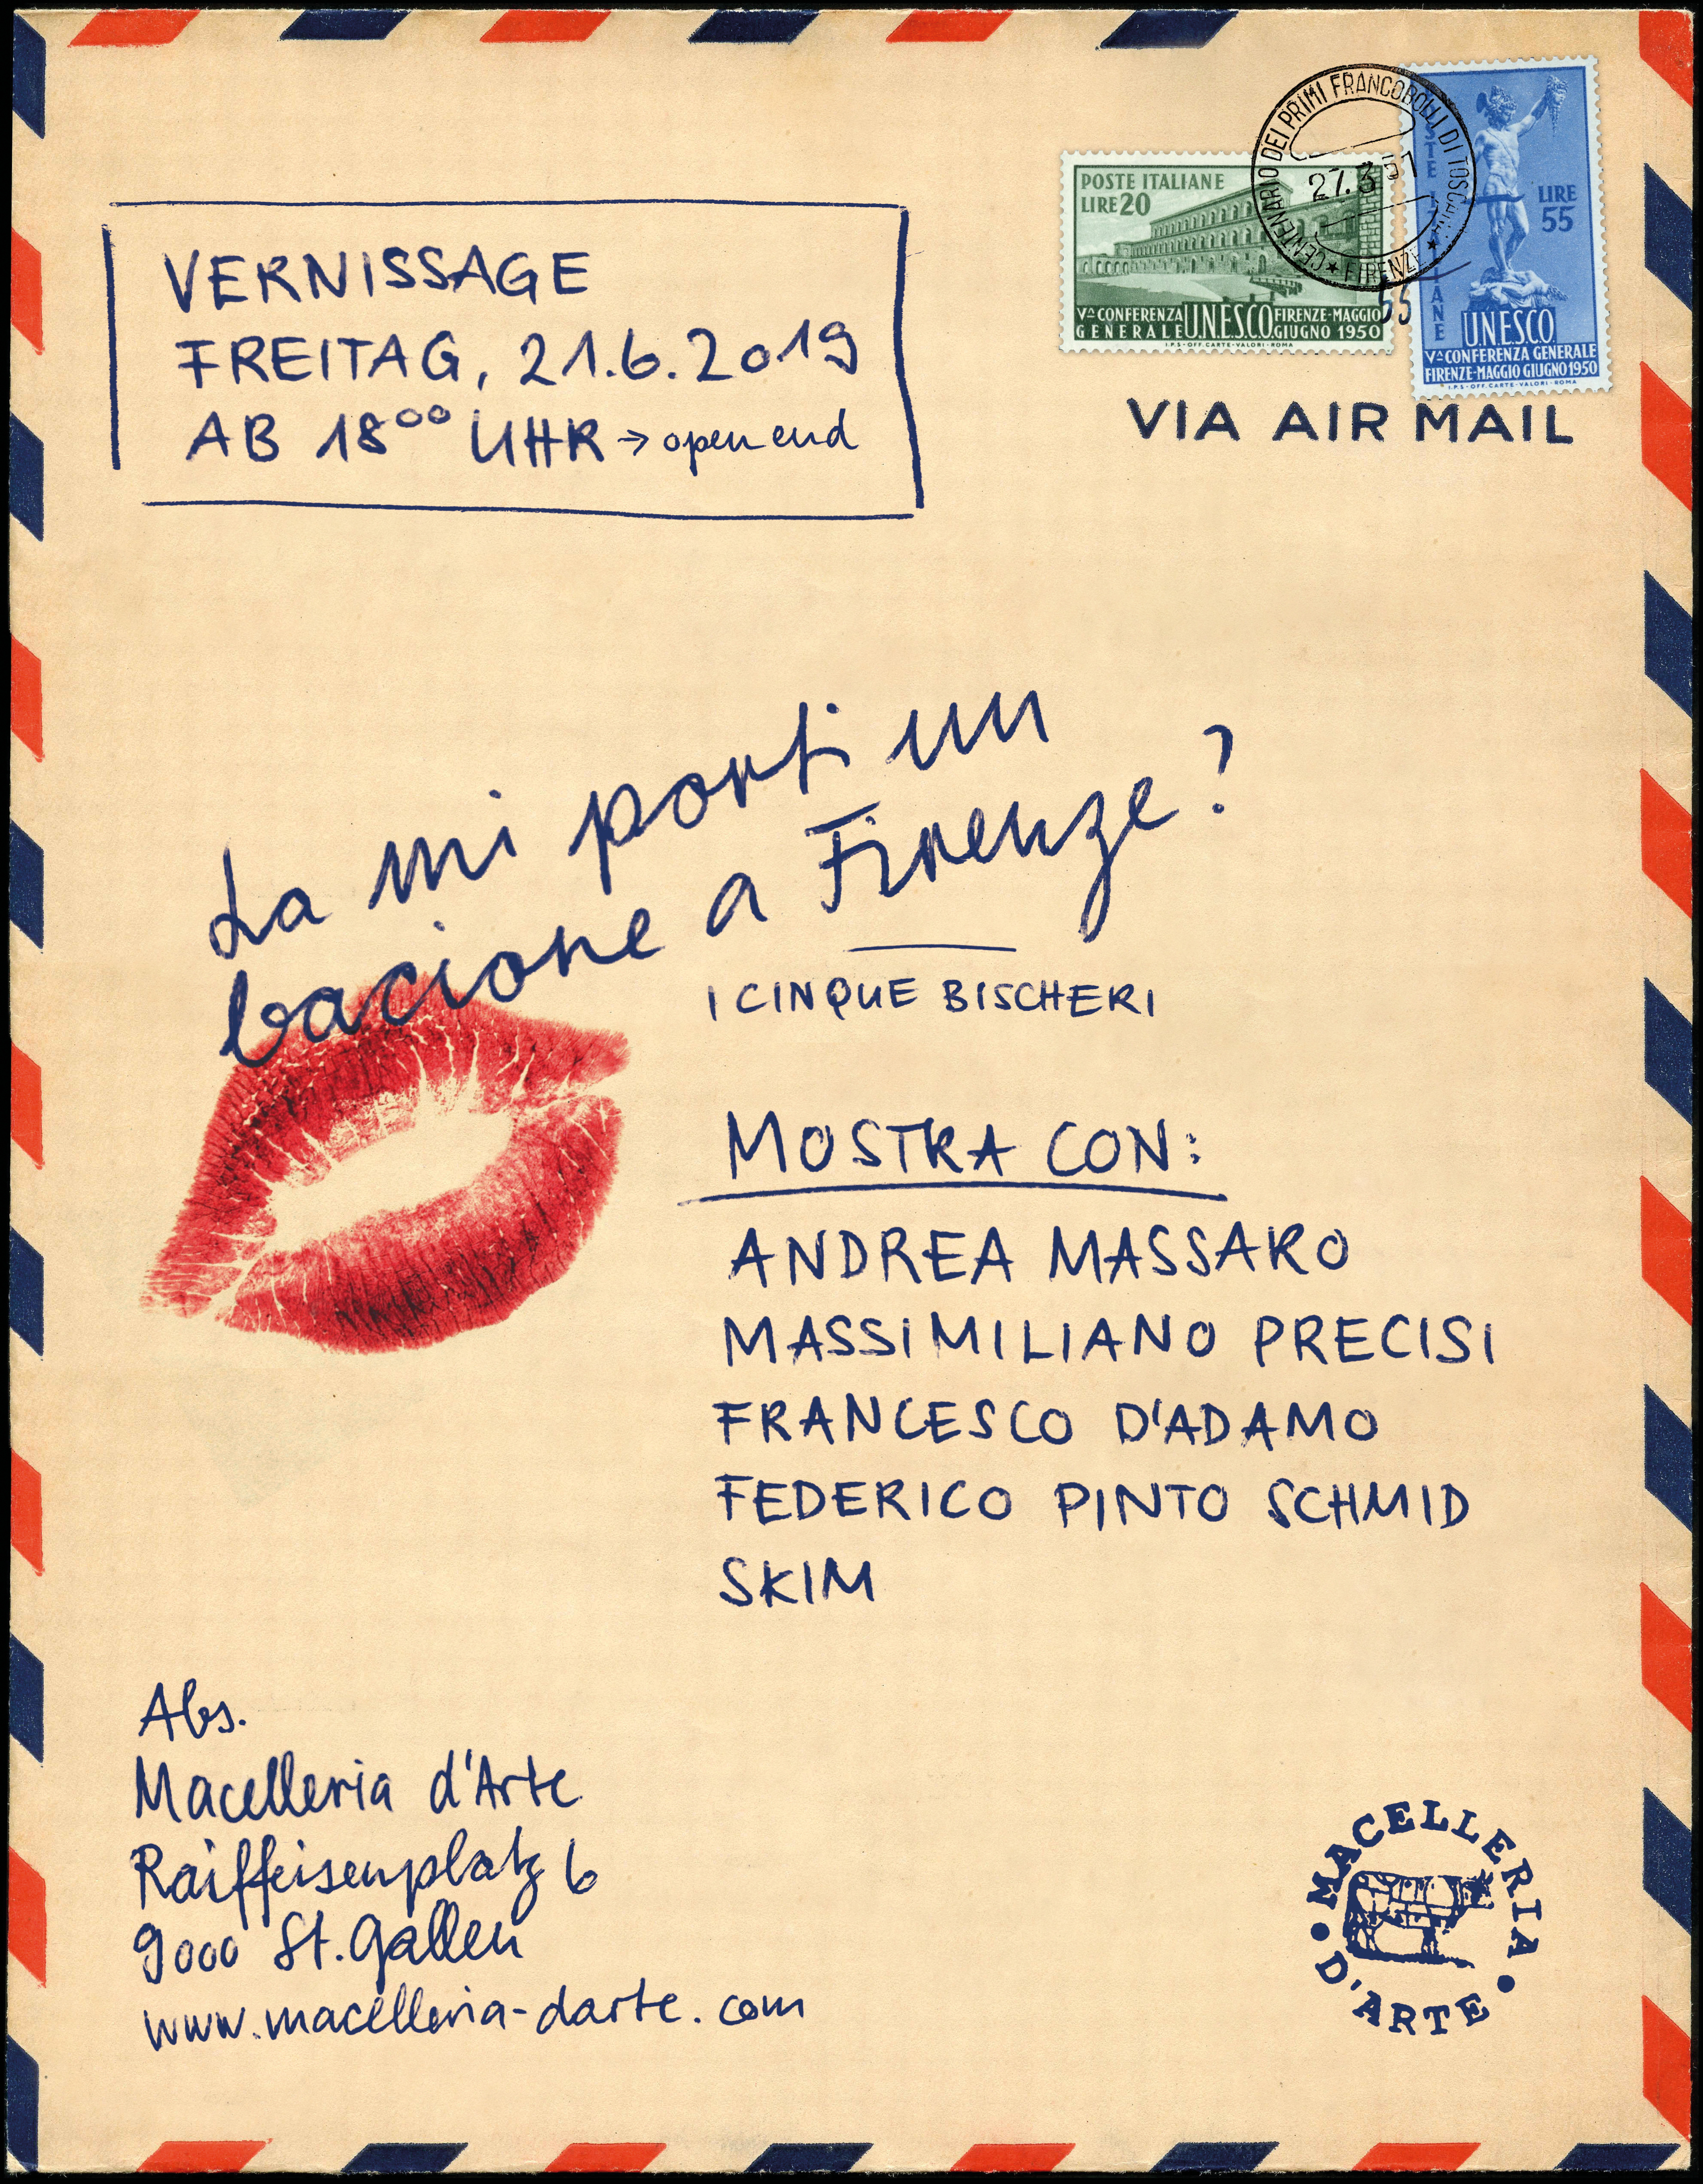 VERNISSAGE
FREITAG, 21.6.2019
AB 18⁰⁰ UHR → open end
CENTENARIO DEI PRIMI FRANCOBOLLI DI TOSCANA
27.3 51
★ FIRENZE ★
POSTE ITALIANE
LIRE 20
Vª CONFERENZA
GENERALE
U.N.E.S.C.O.
FIRENZE-MAGGIO
GIUGNO 1950
I.P.S-OFF. CARTE-VALORI-ROMA
POSTE ITALIANE
LIRE
55
U.N.E.S.C.O.
Vª CONFERENZA GENERALE
FIRENZE-MAGGIO GIUGNO 1950
I.P.S-OFF. CARTE-VALORI-ROMA
VIA AIR MAIL
La mi porti un
bacione a Firenze?
I CINQUE BISCHERI
MOSTRA CON:
ANDREA MASSARO
MASSIMILIANO PRECISI
FRANCESCO D'ADAMO
FEDERICO PINTO SCHMID
SKIM
Abs.
Macelleria d'Arte
Raiffeisenplatz 6
9000 St. Gallen
www.macelleria-darte.com
• MACELLERIA •
D'ARTE